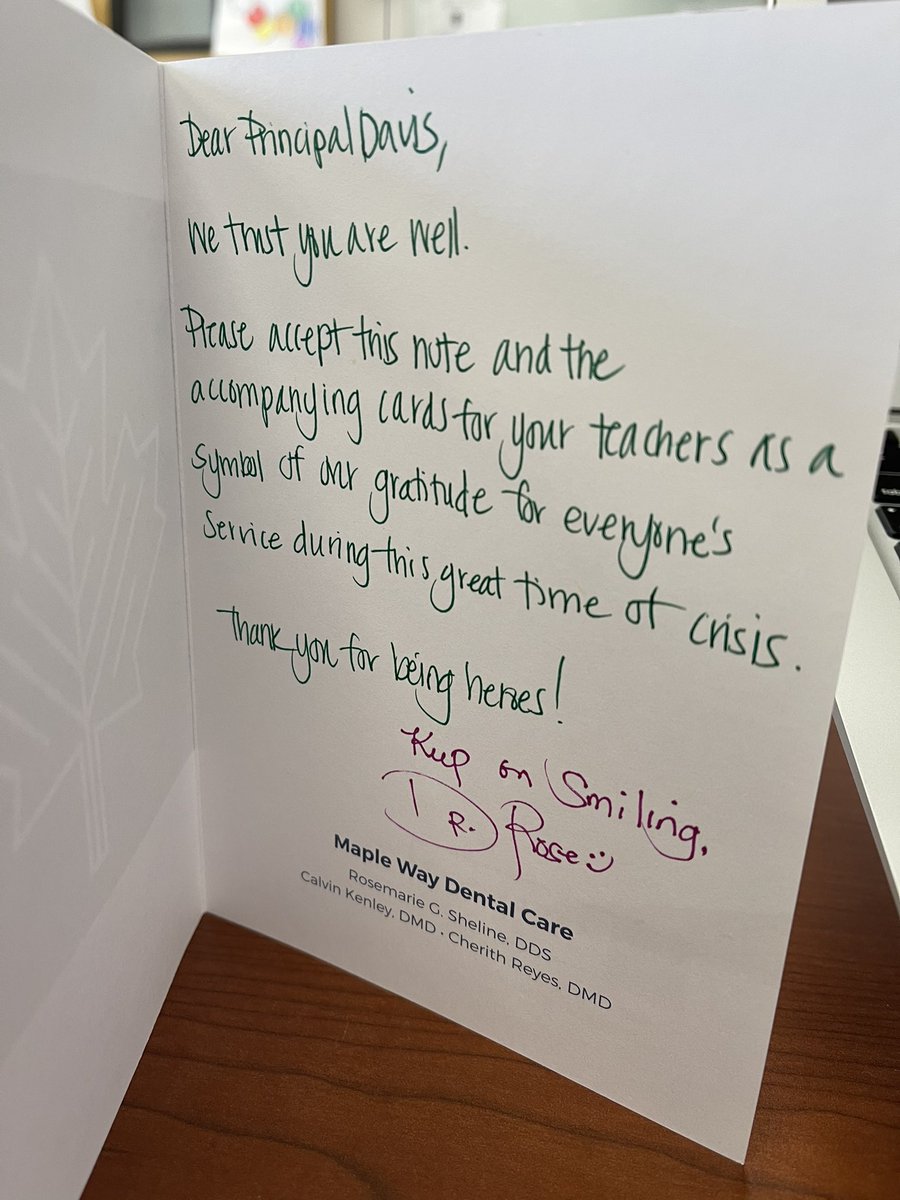 Dear Principal Davis,
We trust you are well.
Please accept this note and the
accompanying cards for your teachers as a
symbol of our gratitude for everyone's
service during this great time of crisis.
Thank you for being heroes!
Keep on Smiling,
DR. Rose
Maple Way Dental Care
Rosemarie G. Sheline, DDS
Calvin Kenley, DMD • Cherith Reyes, DMD